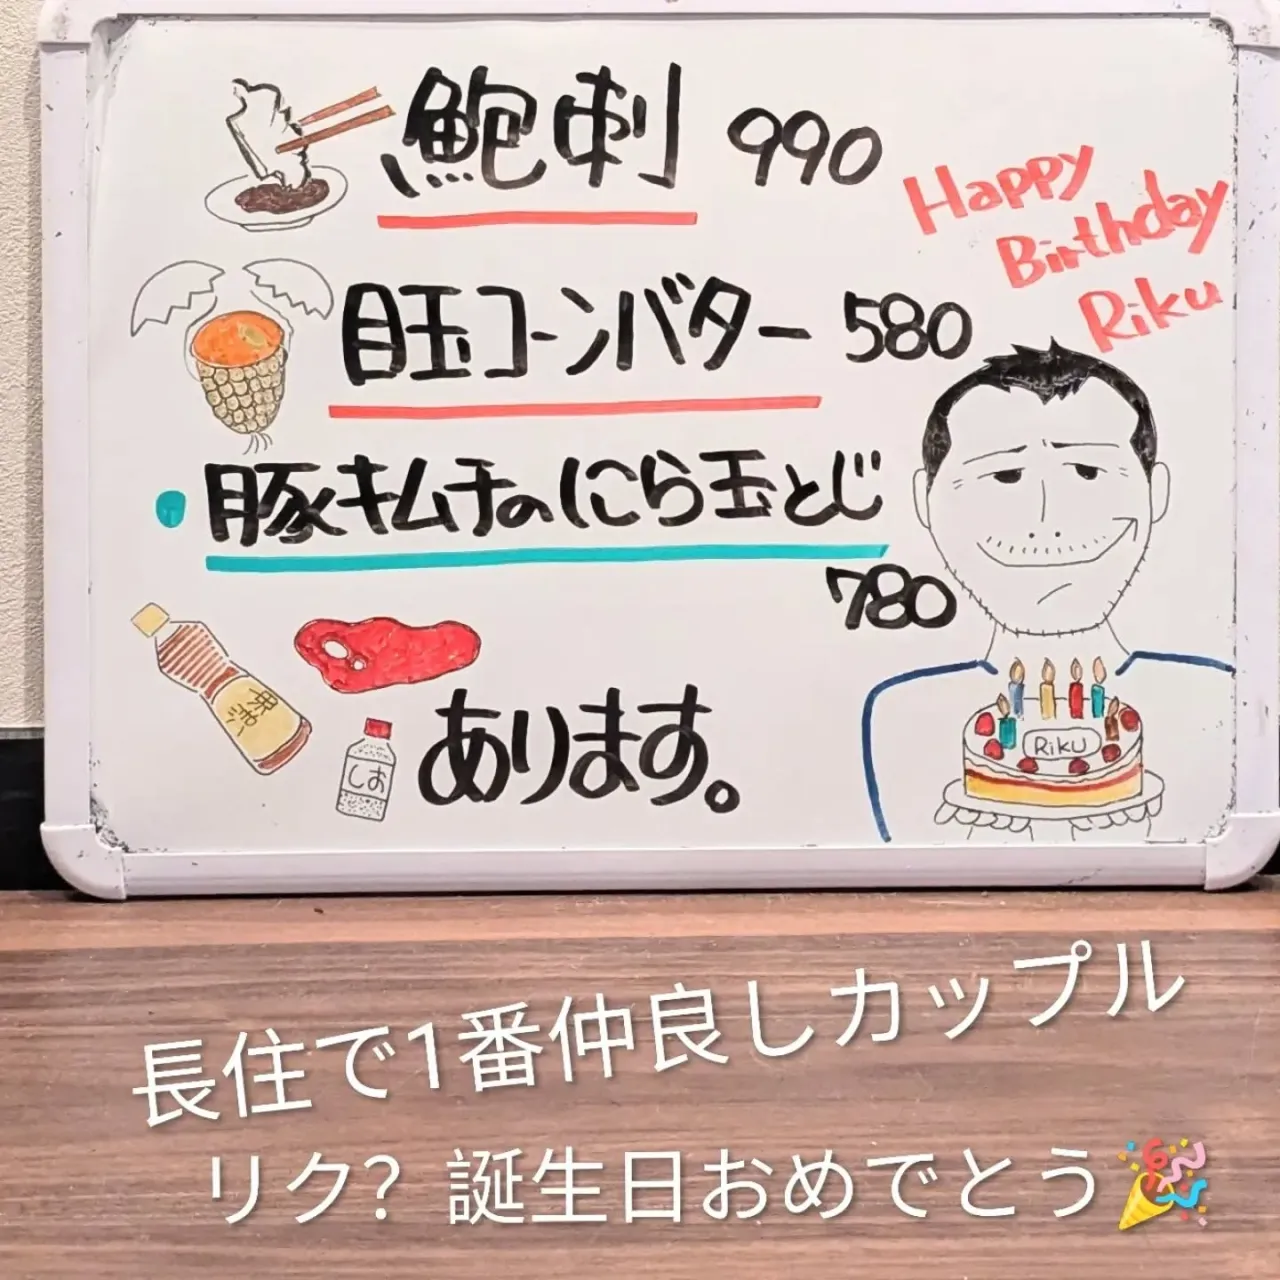 鮑刺 990
Happy
Birthday
Riku
目玉コーンバター 580
・豚キムチのにら玉とじ
780
しお
あります。
Riku
長住で1番仲良しカップル
リク？誕生日おめでとう🎉